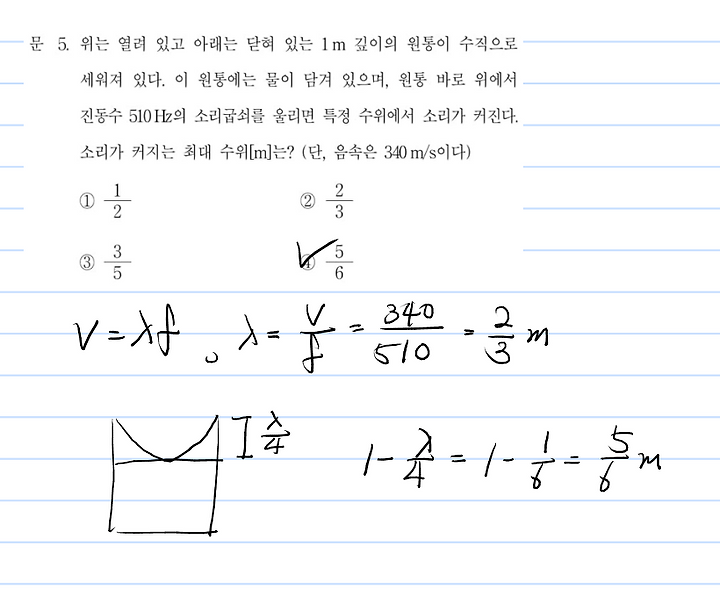 문 5. 위는 열려 있고 아래는 닫혀 있는 1 m 깊이의 원통이 수직으로
세워져 있다. 이 원통에는 물이 담겨 있으며, 원통 바로 위에서
진동수 510 Hz의 소리굽쇠를 울리면 특정 수위에서 소리가 커진다.
소리가 커지는 최대 수위[m]는? (단, 음속은 340 m/s이다)
① 1/2 ② 2/3
③ 3/5 ④ 5/6
V = λf, λ = V/f = 340/510 = 2/3 m
λ/4
1 - λ/4 = 1 - 1/6 = 5/6 m